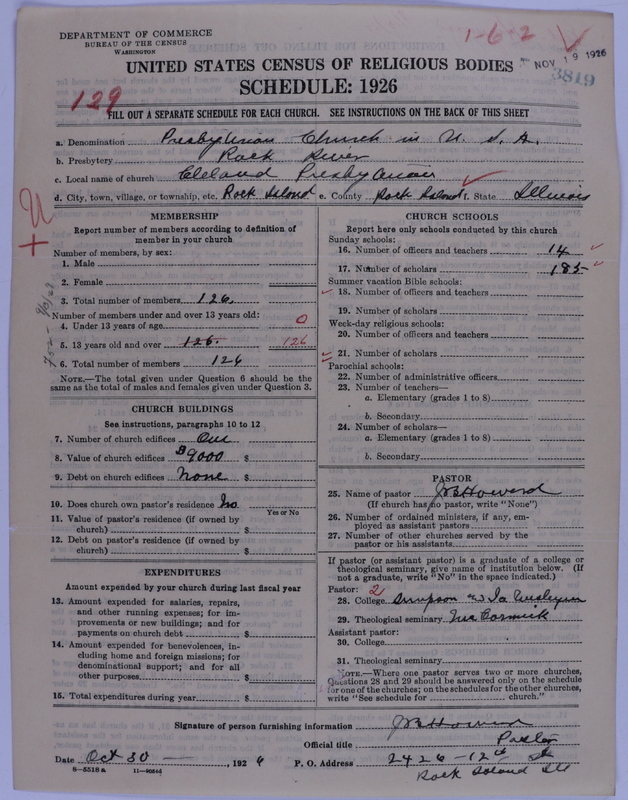 DEPARTMENT OF COMMERCE
BUREAU OF THE CENSUS
WASHINGTON
1-6-2
NOV 19 1926
3819
UNITED STATES CENSUS OF RELIGIOUS BODIES
SCHEDULE: 1926
129
FILL OUT A SEPARATE SCHEDULE FOR EACH CHURCH. SEE INSTRUCTIONS ON THE BACK OF THIS SHEET
a. Denomination Presbyterian Church in U. S. A.
b. Presbytery Rock River
c. Local name of church Cleland Presbyterian
d. City, town, village, or township, etc. Rock Island e. County Rock Island f. State Illinois
MEMBERSHIP
Report number of members according to definition of member in your church
Number of members, by sex:
1. Male
2. Female
3. Total number of members 126
Number of members under and over 13 years old:
4. Under 13 years of age 0
5. 13 years old and over 126 126
6. Total number of members 126
NOTE.—The total given under Question 6 should be the
same as the total of males and females given under Question 3.
CHURCH BUILDINGS
See instructions, paragraphs 10 to 12
7. Number of church edifices One
8. Value of church edifices $9000 $
9. Debt on church edifices None $
10. Does church own pastor's residence No
Yes or No
11. Value of pastor's residence (if owned by
church) $
12. Debt on pastor's residence (if owned by
church) $
EXPENDITURES
Amount expended by your church during last fiscal year
13. Amount expended for salaries, repairs,
and other running expenses; for im-
provements or new buildings; and for
payments on church debt $
14. Amount expended for benevolences, in-
cluding home and foreign missions; for
denominational support; and for all
other purposes $
15. Total expenditures during year $
CHURCH SCHOOLS
Report here only schools conducted by this church
Sunday schools:
16. Number of officers and teachers 14
17. Number of scholars 185
Summer vacation Bible schools:
18. Number of officers and teachers
19. Number of scholars
Week-day religious schools:
20. Number of officers and teachers
21. Number of scholars
Parochial schools:
22. Number of administrative officers
23. Number of teachers—
a. Elementary (grades 1 to 8)
b. Secondary
24. Number of scholars—
a. Elementary (grades 1 to 8)
b. Secondary
PASTOR
25. Name of pastor J B Howard
(If church has no pastor, write "None")
26. Number of ordained ministers, if any, em-
ployed as assistant pastors
27. Number of other churches served by the
pastor or his assistants
If pastor (or assistant pastor) is a graduate of a college or
theological seminary, give name of institution below. (If
not a graduate, write "No" in the space indicated.)
Pastor: 2
28. College Simpson Ia Wesleyan
29. Theological seminary McCormick
Assistant pastor:
30. College
31. Theological seminary
NOTE.—Where one pastor serves two or more churches,
Questions 28 and 29 should be answered only on the schedule
for one of the churches; on the schedules for the other churches,
write "See schedule for church."
Signature of person furnishing information J B Howard
Official title Pastor
Date Oct 30, 1926 P. O. Address 2426-12th St
8-5518a Rock Island Ill